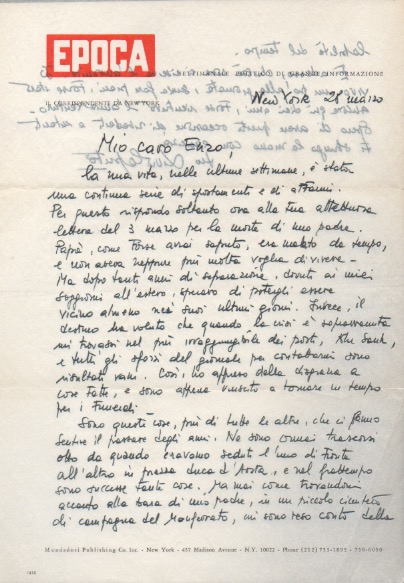 EPOCA
SETTIMANALE POLITICO DI GRANDE INFORMAZIONE
IL CORRISPONDENTE DA NEW YORK
New York 28 marzo
Mio caro Enzo,
la mia vita, nelle ultime settimane, è stata
una continua serie di spostamenti e di affanni.
Per questo rispondo soltanto ora alla tua affettuosa
lettera del 3 marzo per la morte di mio padre.
Papà, come forse avrai saputo, era malato da tempo,
e non aveva neppure più molta voglia di vivere -
Ma dopo tanti anni di separazione, dovuti ai miei
soggiorni all'estero, speravo di potergli essere
vicino almeno nei suoi ultimi giorni. Invece, il
destino ha voluto che quando la crisi è sopravvenuta
mi trovassi nel più irraggiungibile dei posti, Khe Sanh,
e tutti gli sforzi del giornale per contattarmi sono
risultati vani. Così, ho appreso della disgrazia a
cose fatte, e sono appena riuscito a tornare in tempo
per i funerali -
Sono queste cose, più di tutte le altre, che ci fanno
sentire il passare degli anni. Ne sono ormai trascorsi
da quando eravamo seduti l'uno di fronte
all'altro in piazza Duca d'Aosta, e nel frattempo
sono successe tante cose. Ma mai come trovandomi
accanto alla bara di mio padre, in un piccolo cimitero
di campagna del Monferrato, mi sono reso conto della
Mondadori Publishing Co. Inc. - New York - 437 Madison Avenue - N.Y. 10022 - Phone (212)